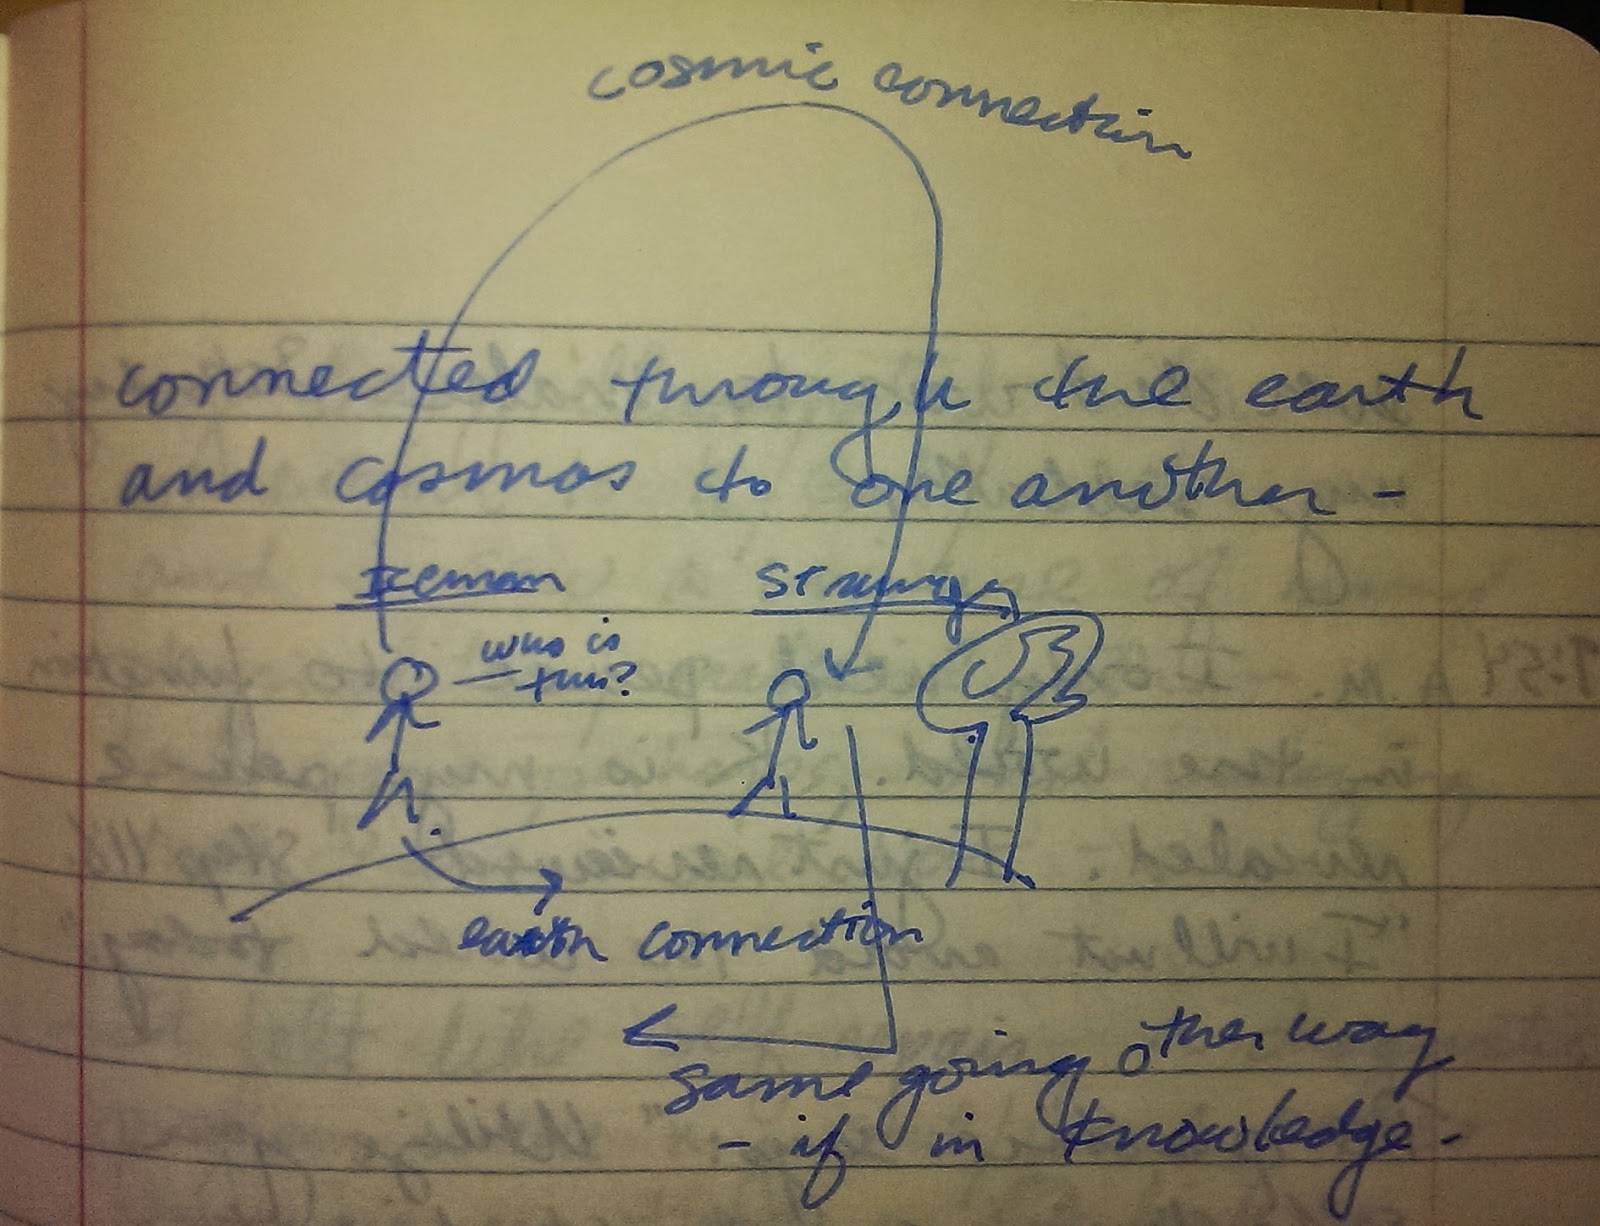 cosmic connection
connected through the earth
and cosmos to one another -
stranger
who is
this?
earth connection
same going other way
- if in knowledge -